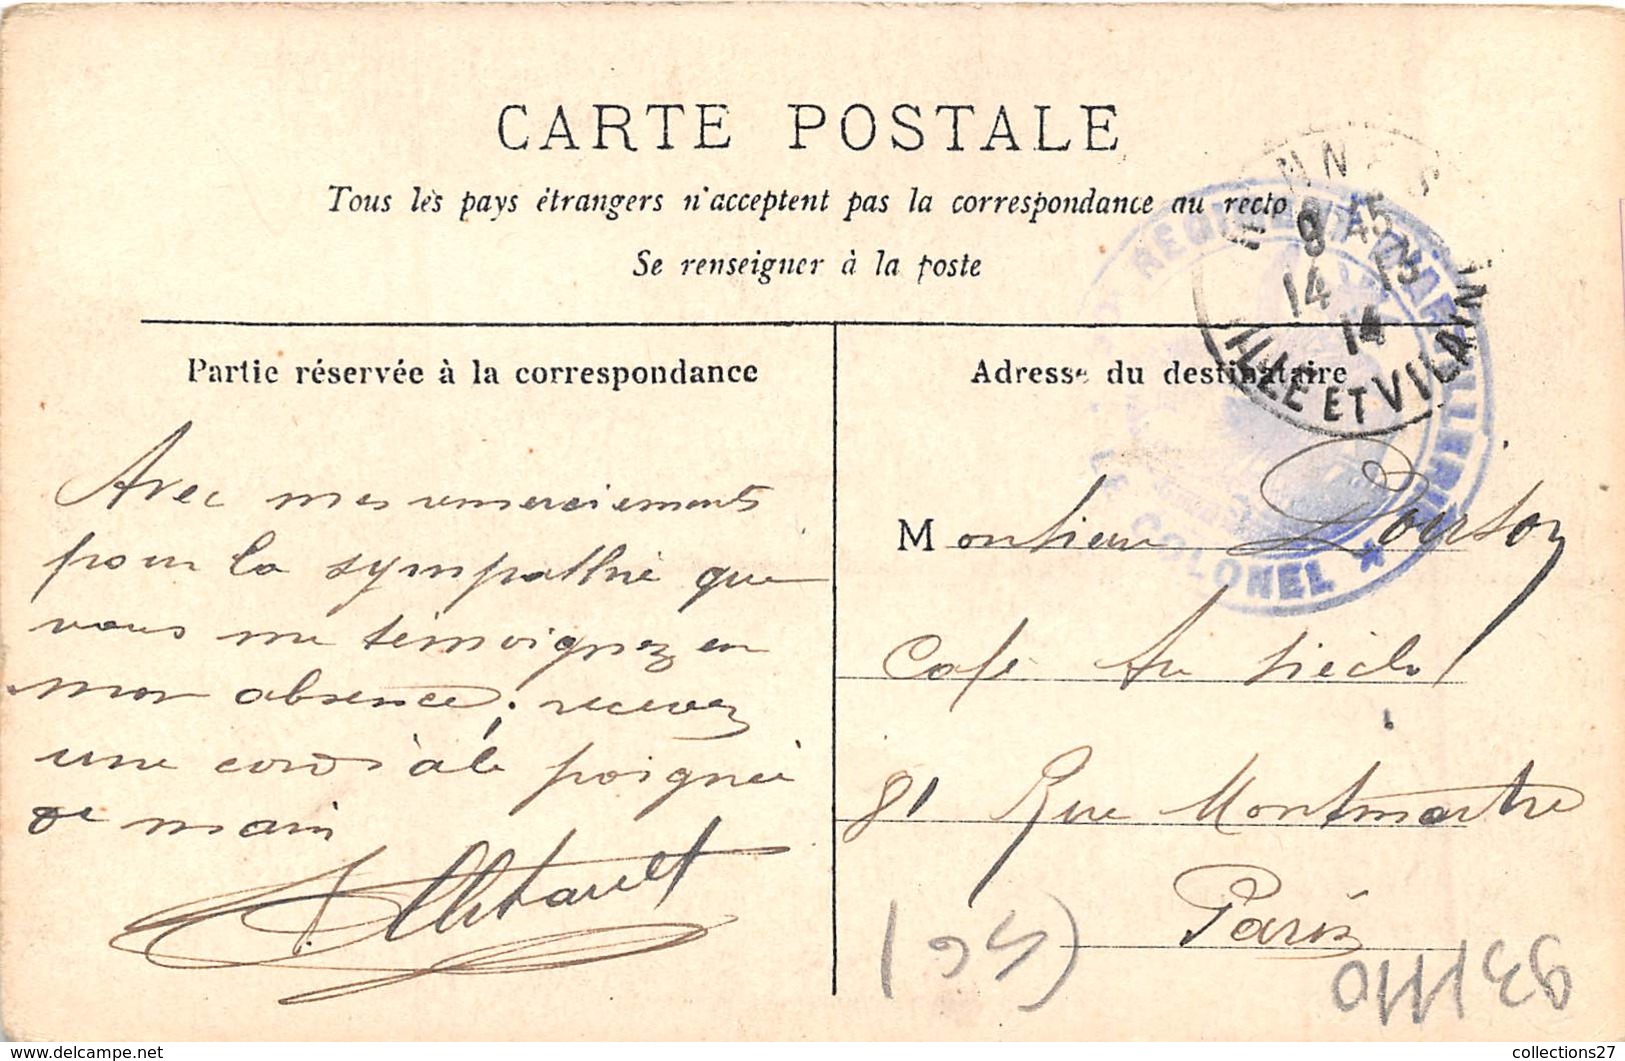 CARTE POSTALE
Tous les pays étrangers n'acceptent pas la correspondance au recto
Se renseigner à la poste
9 45
14 13
14
ILLE ET VILAINE
REGIMENT D'ARTILLERIE
COLONEL ★
Partie réservée à la correspondance
Avec mes remerciements
pour la sympathie que
vous me témoignez en
mon absence, recevez
une cordiale poignée
de main
Adresse du destinataire
Monsieur
Café Au Siècle
81 Rue Montmartre
Paris
93110
collections27